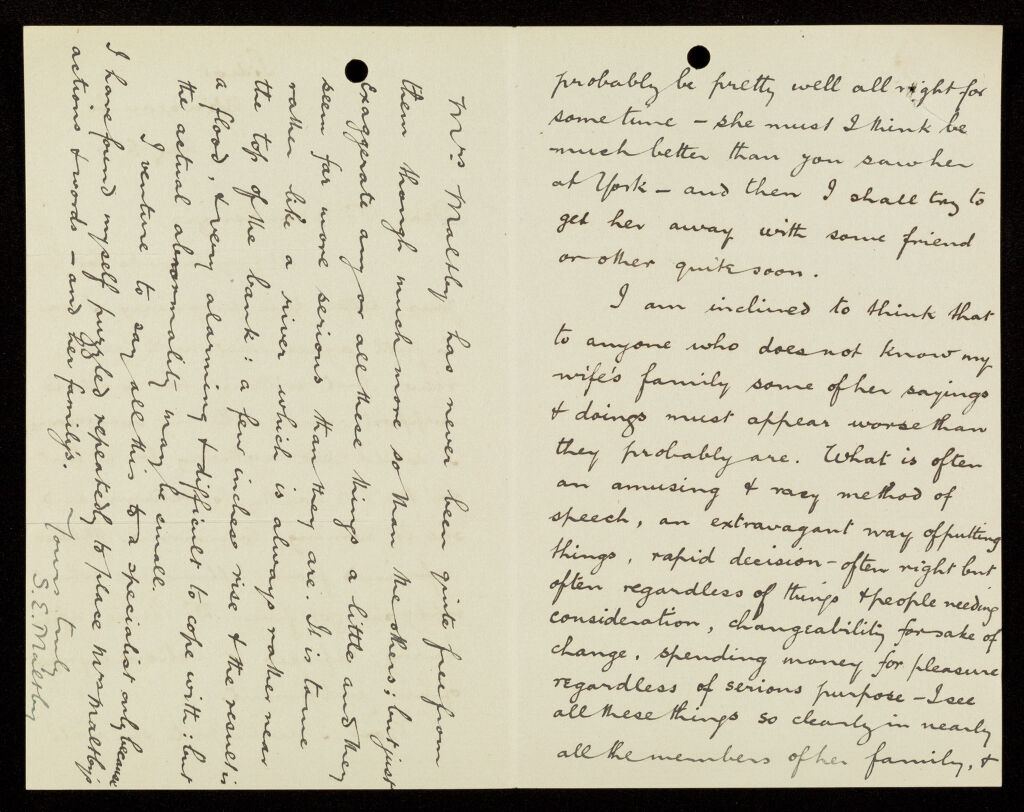 probably be pretty well all right for
some time – she must I think be
much better than you saw her
at York – and then I shall try to
get her away with some friend
or other quite soon.
I am inclined to think that
to anyone who does not know my
wife's family some of her sayings
& doings must appear worse than
they probably are. What is often
an amusing & racy method of
speech, an extravagant way of putting
things, rapid decision – often right but
often regardless of things & people needing
consideration, changeability for sake of
change, spending money for pleasure
regardless of serious purpose – I see
all these things so clearly in nearly
all the members of her family, &
Mrs Maltby has never been quite free from
them though much more so than the others; but just
exaggerate any or all these things a little and they
seem far more serious than they are. It is to me
rather like a river which is always rather near
the top of the bank: a few inches rise & the result is
a flood, & very alarming & difficult to cope with: but
the actual abnormality may be small.
I venture to say all this to a specialist only because
I have found myself puzzled repeatedly to place Mrs Maltby's
actions & words – and her family's.
Yours truly
S. E. Maltby